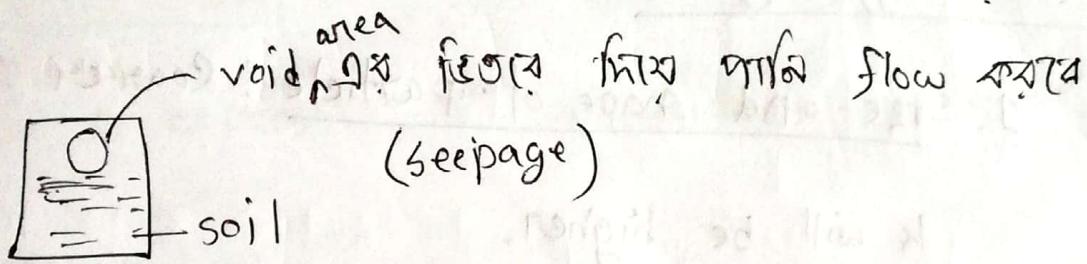 void area এর ভিতরে দিয়ে পানি flow করবে
(seepage)
soil